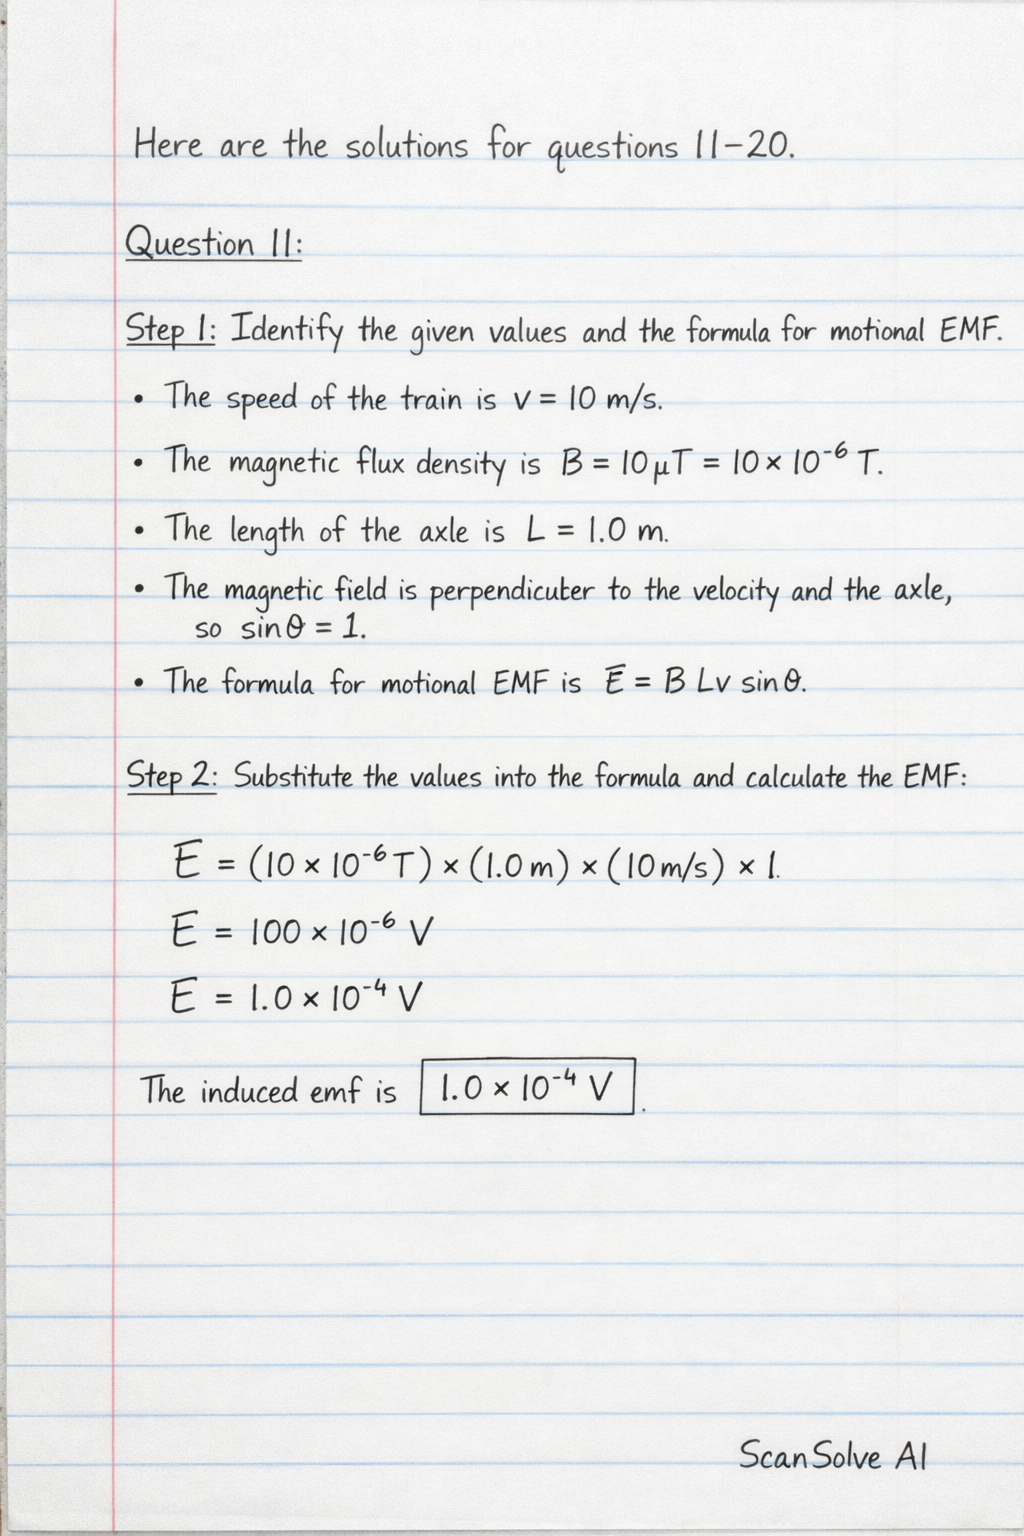 Here are the solutions for questions 11-20.
Question 11:
Step 1: Identify the given values and the formula for motional EMF.
• The speed of the train is v = 10 m/s.
• The magnetic flux density is B = 10 μT = 10 × 10⁻⁶ T.
• The length of the axle is L = 1.0 m.
• The magnetic field is perpendicuter to the velocity and the axle,
so sinθ = 1.
• The formula for motional EMF is E = B Lv sinθ.
Step 2: Substitute the values into the formula and calculate the EMF:
E = (10 × 10⁻⁶ T) × (1.0 m) × (10 m/s) × 1.
E = 100 × 10⁻⁶ V
E = 1.0 × 10⁻⁴ V
The induced emf is 1.0 × 10⁻⁴ V.
ScanSolve AI